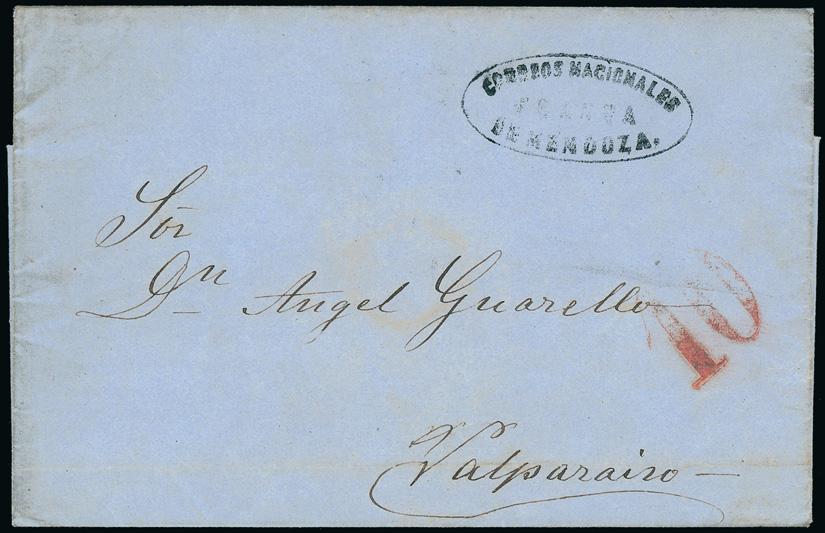 CORREOS NACIONALES
FRANCA
DE MENDOZA.
Sōr
Dn Angel Guarello
10
Valparaiso